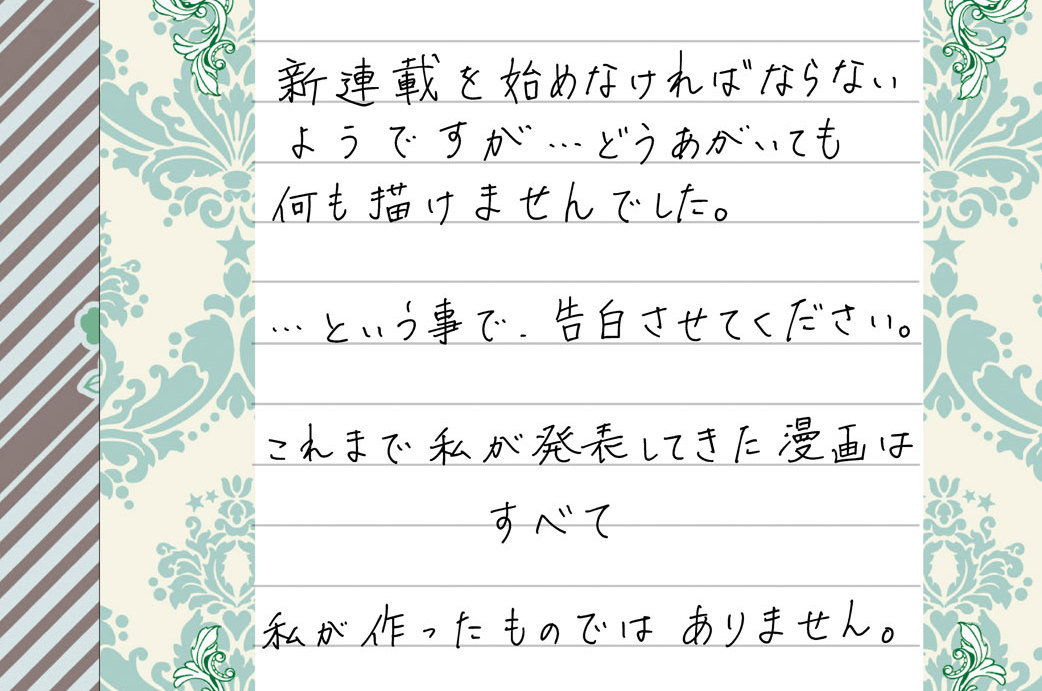 新連載を始めなければならない
ようですが…どうあがいても
何も描けませんでした。
…という事で、告白させてください。
これまで私が発表してきた漫画は
すべて
私が作ったものではありません。